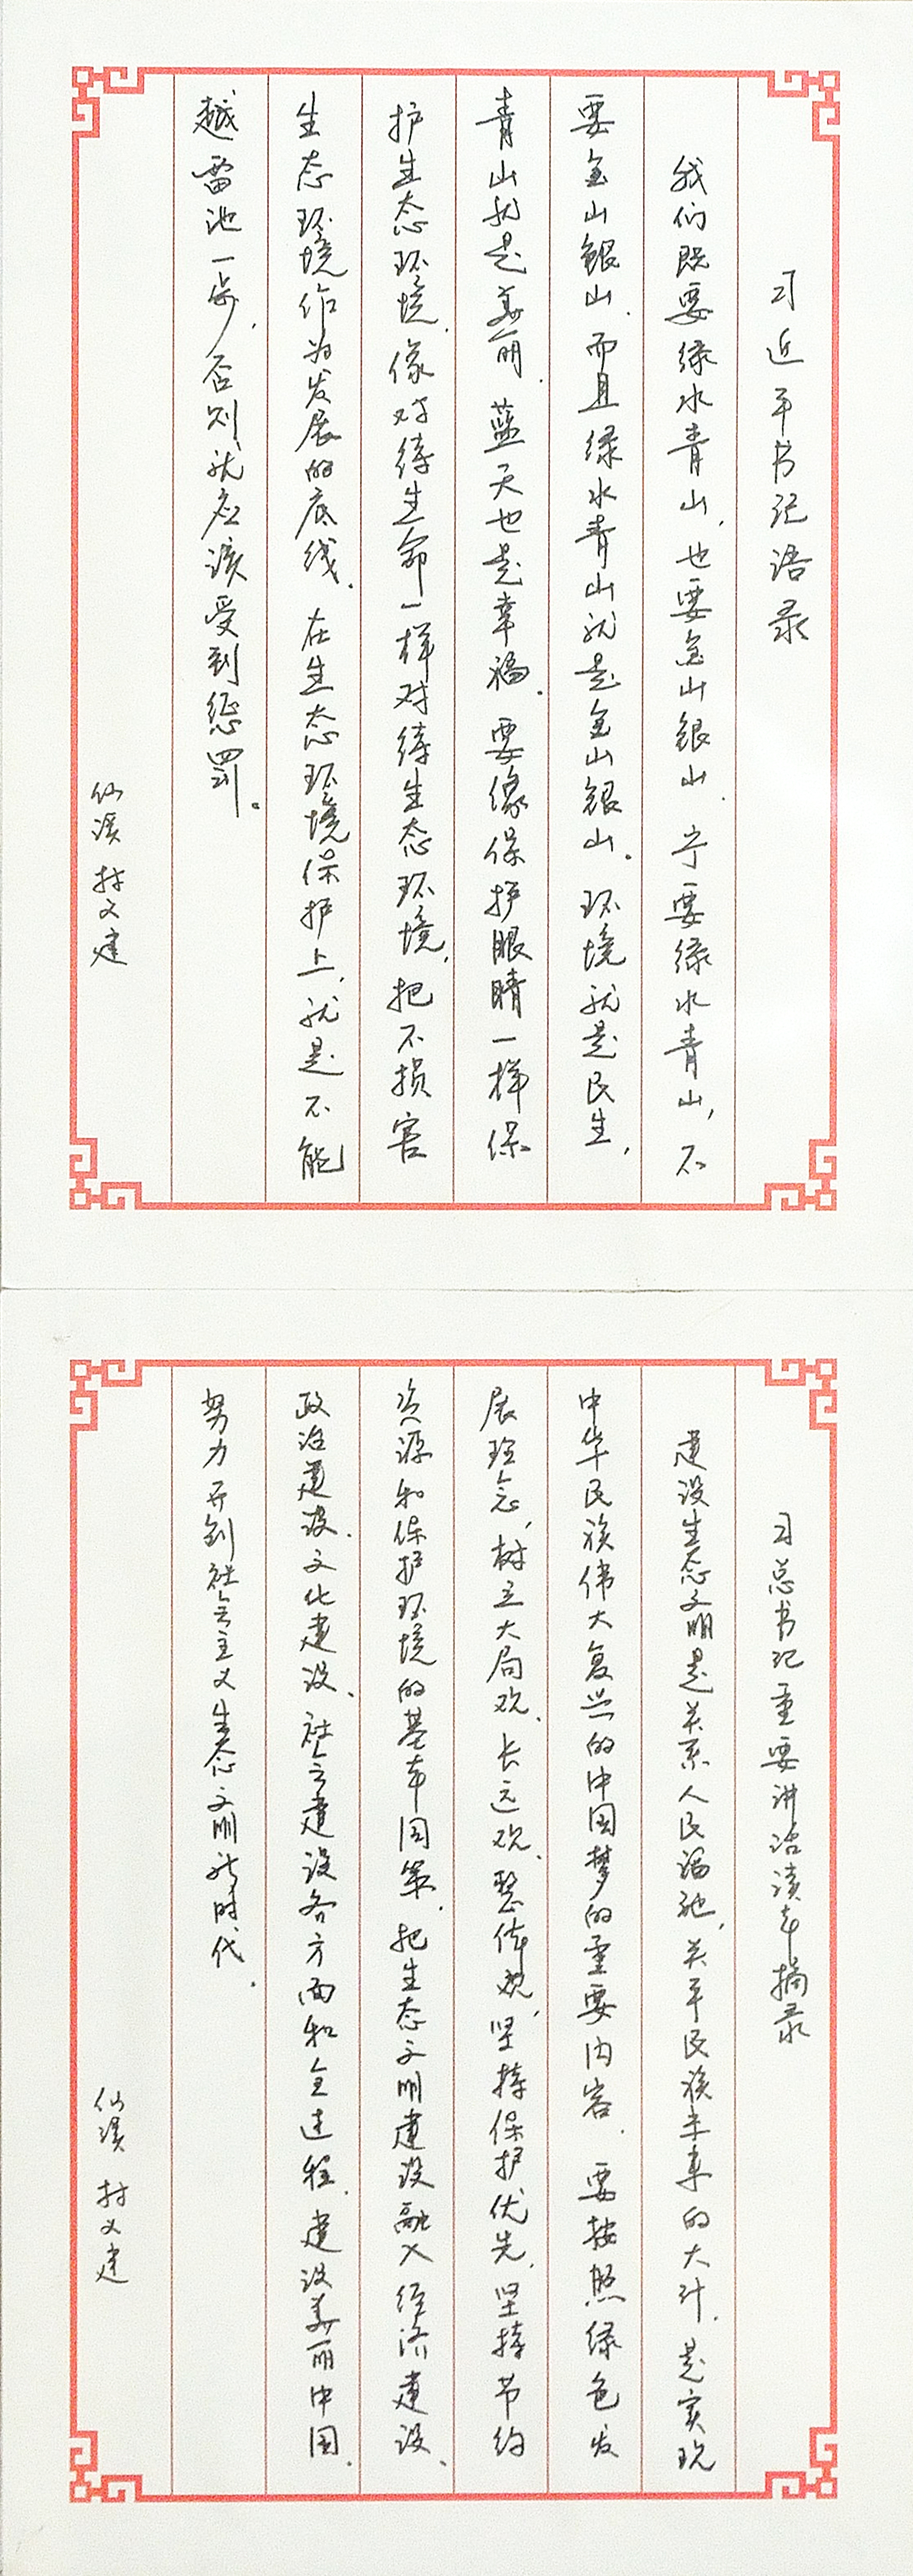 习近平书记语录
我们既要绿水青山，也要金山银山。宁要绿水青山，不
要金山银山，而且绿水青山就是金山银山。环境就是民生，
青山就是美丽，蓝天也是幸福。要像保护眼睛一样保
护生态环境，像对待生命一样对待生态环境，把不损害
生态环境作为发展的底线。在生态环境保护上，就是不能
越雷池一步，否则就应该受到惩罚。
仙溪 村文建
习总书记重要讲话读本摘录
建设生态文明是关系人民福祉，关乎民族未来的大计，是实现
中华民族伟大复兴的中国梦的重要内容。要按照绿色发
展理念，树立大局观、长远观、整体观，坚持保护优先，坚持节约
资源和保护环境的基本国策，把生态文明建设融入经济建设、
政治建设、文化建设、社会建设各方面和全过程，建设美丽中国，
努力开创社会主义生态文明新时代。
仙溪 村文建